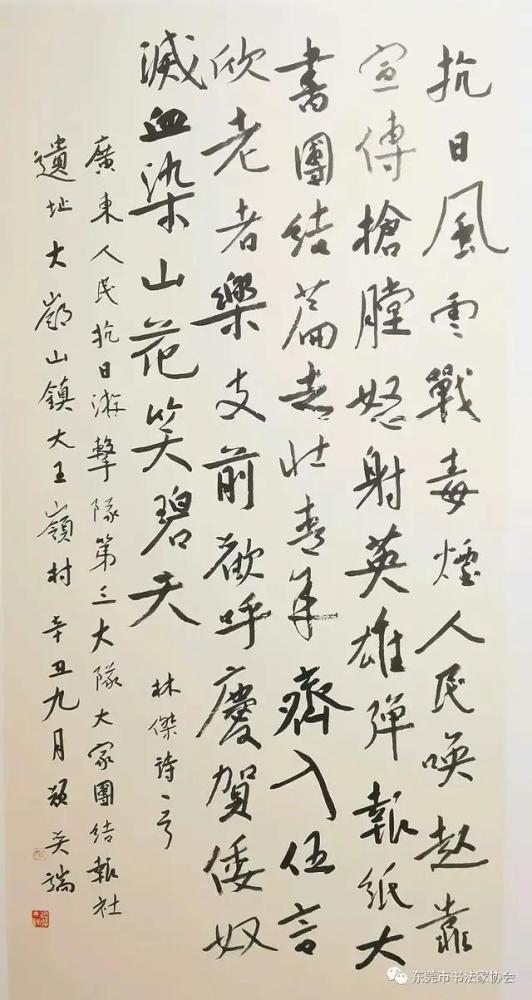 抗日風雲戰毒煙人民喚起靠
宣傳槍膛怒射英雄彈報紙大
書團結篇老壯青年齊入伍言
欣老者樂支前歡呼慶賀倭奴
滅血染山花笑碧天
林傑詩
廣東人民抗日游擊隊第三大隊大家團結報社
遺址大嶺山鎮大王嶺村 辛丑九月
东莞市书法家协会